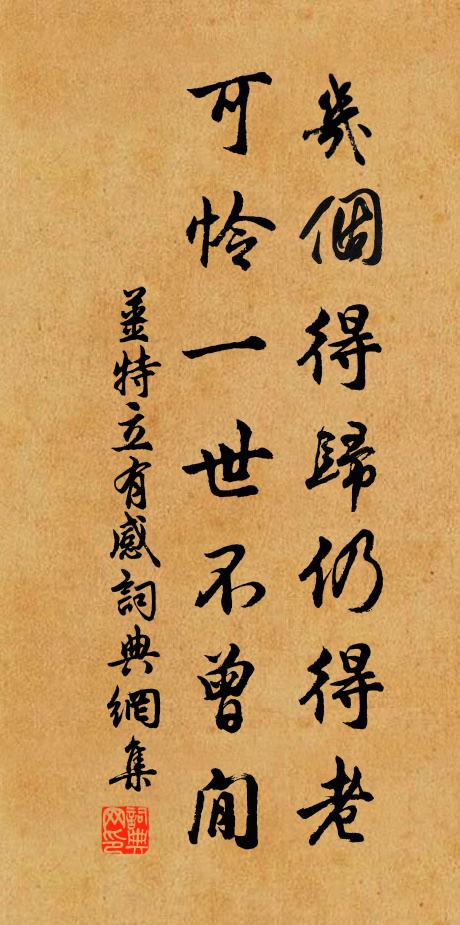 幾個得歸仍得老
可憐一世不曾閒
姜特立有感詞典網集
詞典网印